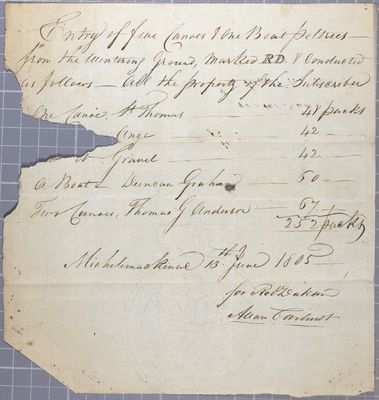 Entry of five Canoes & One Boat peltries
from the Wintering Ground, Marked RD & Conducted
as follows — All the property of the Subscriber
One Canoe St Thomas — 41 packs
Ange — 42
do Gravel — 42
a Boat — Duncan Graham — 60
Two Canoes, Thomas G Anderson — 67
252 packs
Michilimackinac 13th June 1805
for Robt Dickson
Allan